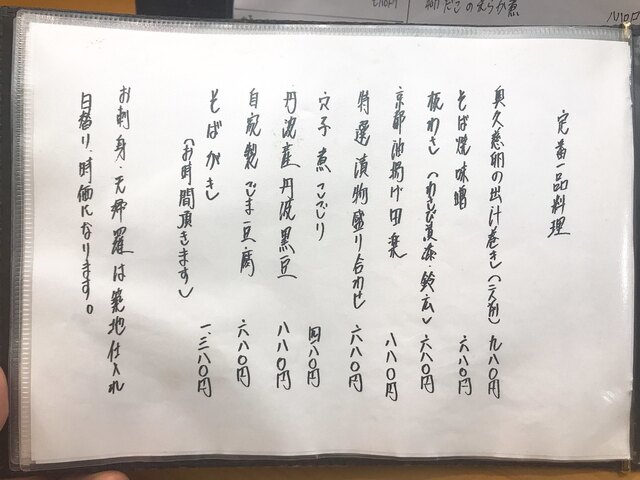 定番一品料理
奥久慈卵の出汁巻き(二人前) 九八〇円
そば焼味噌 六八〇円
板わさ (わさび漬添・鈴広) 六八〇円
京都油揚げ田楽 八八〇円
特選漬物盛り合わせ 六八〇円
穴子煮こごり 四八〇円
丹波産丹波黒豆 八八〇円
自家製ごま豆腐 六八〇円
そばがき 一、三八〇円
(お時間頂きます)
お刺身・天婦羅は築地仕入れ
日替り、時価になります。